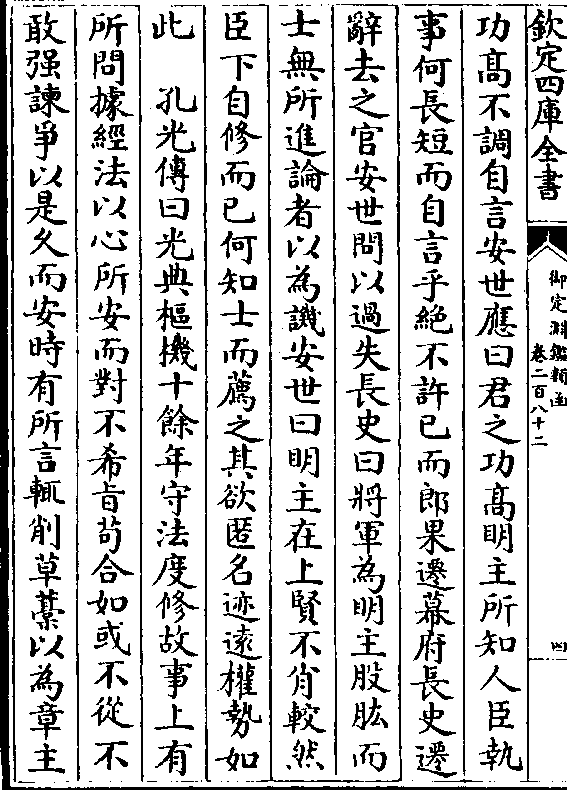 欽定四庫全書
御定淵鑑類函
卷二百八十二
四
功高不調自言安世應曰君之功高明主所知人臣執
事何長短而自言乎絶不許已而郎果遷幕府長史遷
辭去之官安世問以過失長史曰將軍為明主股肱而
士無所進論者以為譏安世曰明主在上賢不肖較然
臣下自修而已何知士而薦之其欲匿名迹逺權勢如
此　孔光傳曰光典樞機十餘年守法度修故事上有
所問據經法以心所安而對不希旨苟合如或不從不
敢强諫爭以是久而安時有所言輒削草藳以為章主